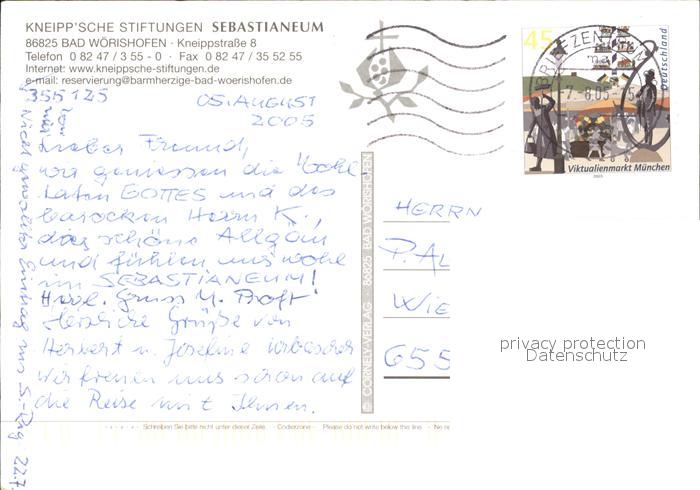 KNEIPP'SCHE STIFTUNGEN SEBASTIANEUM
86825 BAD WÖRISHOFEN · Kneippstraße 8
Telefon 0 82 47 / 3 55 - 0 · Fax 0 82 47 / 35 52 55
Internet: www.kneippsche-stiftungen.de
e-mail: reservierung@barmherzige-bad-woerishofen.de
355125
05. AUGUST
2005
Lieber Freund,
wir geniessen die Wohl-
taten GOTTES und des
barocken Herrn K.,
das schöne Allgäu
und fühlen uns wohl
im SEBASTIANEUM!
Herzl. Gruss M.
Herzliche Grüße von
Herbert u. Josefine
Wir freuen uns schon auf
die Reise mit Ihnen.
22.7.
© CORNELY-VERLAG · 86825 BAD WÖRISHOFEN
45
Deutschland
Viktualienmarkt München
2003
BRIEFZENTRUM
-7.-8.05-
HERRN
P. AL
WIE
655
privacy protection
Datenschutz
Schreiben Sie bitte nicht unter dieser Zeile. · Codierzone · Please do not write below this line. · Ne